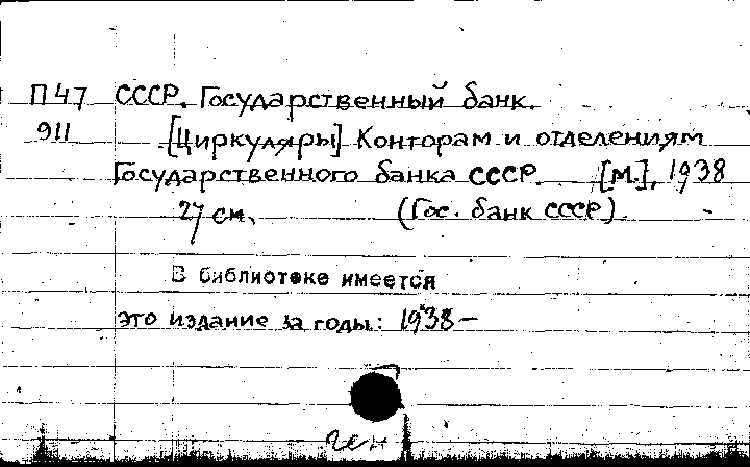 П47 СССР. Государственный банк.
911 [Циркуляры] Конторам и отделениям
Государственного банка СССР. [М.], 1938
27 см. (Гос. банк СССР)
В библиотеке имеется
это издание за годы: 1938—
ген